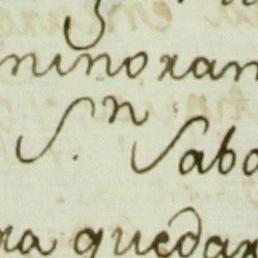 minoran
S.n Saba
ra quedar